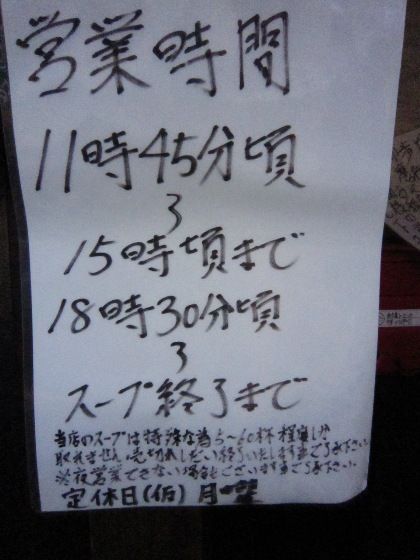 営業時間
11時45分頃
〜
15時頃まで
18時30分頃
〜
スープ終了まで
当店のスープは特殊な為5〜60杯程度しか
取れません売切れしだい終了いたします事ご了承下さい
深夜営業できない場合もございます事ご了承下さい
定休日(仮)月